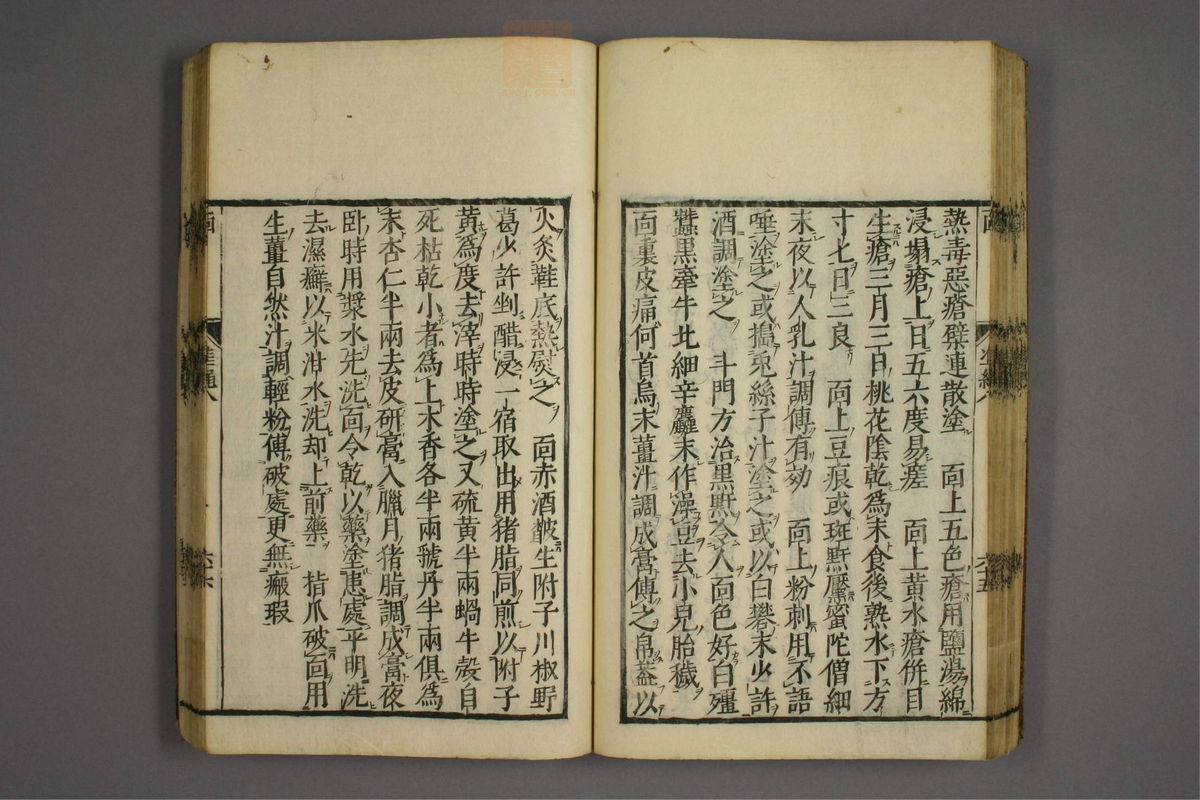 熱毒惡瘡檗連散塗　面上五色瘡用鹽湯綿
浸搨瘡上日五六度易瘥　面上黄水瘡併目
生瘡三月三日桃花陰乾為末食後熟水下方
寸七日三良　面上豆痕或斑䵟黶蜜陀僧細
末夜以人乳汁調傅有効　面上粉刺用不語
唾塗之或搗兎絲子汁塗之或以白礬末少許
酒調塗之　斗門方治黒䵟令人面色好白殭
蠶黒牽牛北細辛麤末作澡豆去小兒胎穢
面裏皮痛何首烏末薑汁調成膏傅之帛蓋以
火炙鞋底熱熨之　面赤酒皶生附子川椒野
葛少許剉醋浸一宿取出用猪脂同煎以附子
黄為度去滓時時塗之又硫黄半兩蝸牛殻自
死枯乾小者為上木香各半兩虢丹半兩俱為
末杏仁半兩去皮研膏入臘月猪脂調成膏夜
卧時用漿水先洗面令乾以藥塗患處平明洗
去濕癬以米泔水洗却上前藥　指爪破面用
生薑自然汁調輕粉傅破處更無瘢瑕
面
六五
面